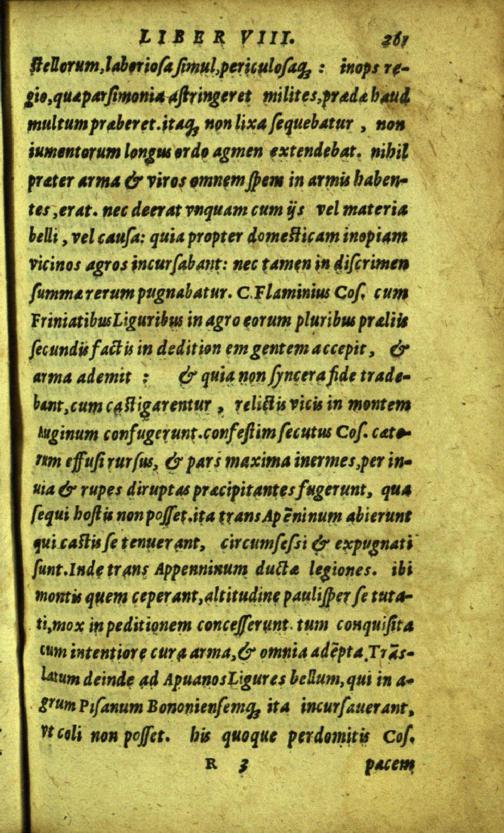 LIBER VIII. 261
stellorum, laboriosa simul, periculosaq́; : inops re-
gio, quæ parsimonia astringeret milites, præda haud
multum præberet. itaq; non lixa sequebatur, non
iumentorum longus ordo agmen extendebat. nihil
præter arma & viros omnem spem in armis haben-
tes, erat. nec deerat vnquam cum ijs vel materia
belli, vel causa: quia propter domesticam inopiam
vicinos agros incursabant: nec tamen in discrimen
summa rerum pugnabatur. C. Flaminius Cos. cum
Friniatibus Liguribus in agro eorum pluribus prœliis
secundis factis in dedition em gentem accepit, &
arma ademit : & quia non syncera fide trade-
bant, cum castigarentur, relictis vicis in montem
Auginum confugerunt. confestim secutus Cos. cæte-
rum effusi rursus, & pars maxima inermes, per in-
uia & rupes diruptas præcipitantes fugerunt, qua
sequi hostis non posset. ita trans Apēninum abierunt
qui castis se tenuerant, circumsessi & expugnati
sunt. Inde trans Appenninum ductæ legiones. ibi
montis quem ceperant, altitudine paulisper se tuta-
ti, mox in peditionem concesserunt. tum conquisita
cum intentiore cura arma, & omnia adēpta. Trās-
latum deinde ad Apuanos Ligures bellum, qui in a-
grum Pisanum Bononiensemq; ita incursauerant,
vt coli non posset. his quoque perdomitis Cos.
R 3 pacem